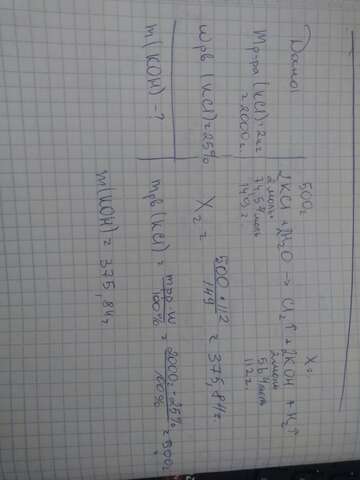 Дано:
m р-ра (KCl) = 2кг
= 2000г.
ω рв (KCl) = 25%
m(KOH) - ?
500г
Xг
2KCl + 2H2O → Cl2↑ + 2KOH + H2↑
2моль
2моль
74,5г/моль
56г/моль
149г.
112г.
Xг = 500·112 / 149 = 375,84г
m рв (KCl) = mр·w / 100% = 2000г·25% / 100% = 500г
m(KOH) = 375,84г